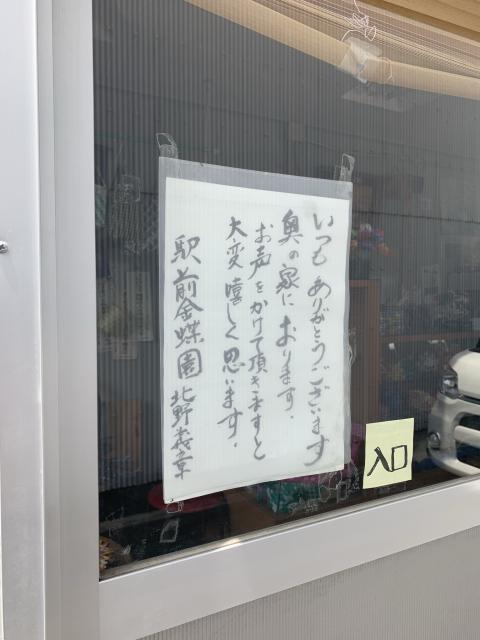 いつもありがとうございます
奥の家におります.
お声をかけて頂きますと
大変嬉しく思います.
駅前金蝶園 北野義章
入口